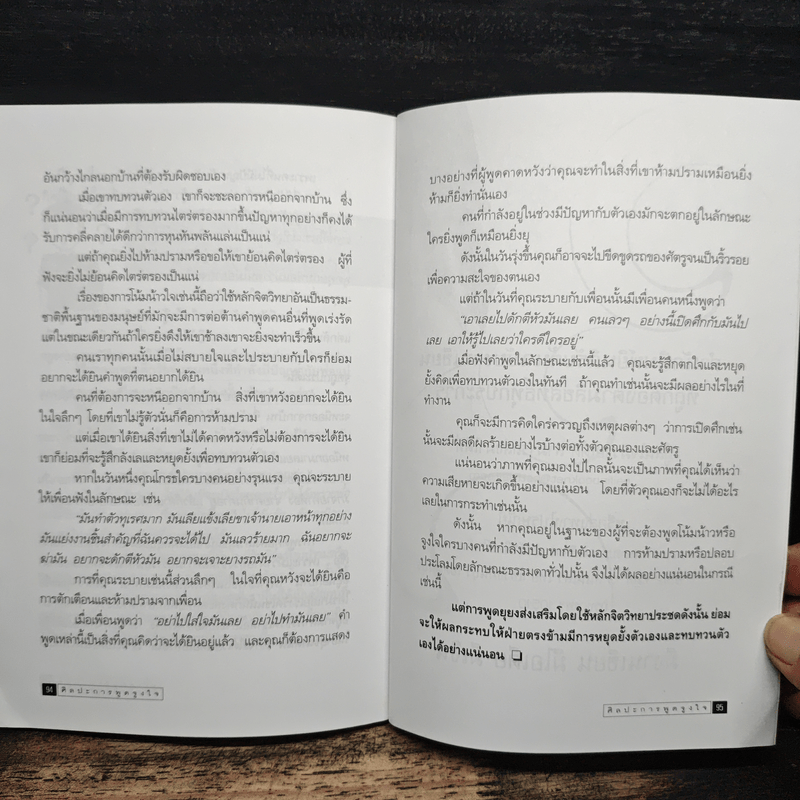 อันกว้างไกลนอกบ้านที่ต้องรับผิดชอบเอง
เมื่อเขาทบทวนตัวเอง เขาก็จะชะลอการหนีออกจากบ้าน ซึ่ง
ก็แน่นอนว่าเมื่อมีการทบทวนไตร่ตรองมากขึ้นปัญหาทุกอย่างก็คงได้
รับการคลี่คลายได้ดีกว่าการหุนหันพลันแล่นเป็นแน่
แต่ถ้าคุณยิ่งไปห้ามปรามหรือขอให้เขาย้อนคิดไตร่ตรอง ผู้ที่
ฟังจะยิ่งไม่ย้อนคิดไตร่ตรองเป็นแน่
เรื่องของการโน้มน้าวใจเช่นนี้ถือว่าใช้หลักจิตวิทยาอันเป็นธรรม-
ชาติพื้นฐานของมนุษย์ที่มักจะมีการต่อต้านคำพูดคนอื่นที่พูดเร่งรัด
แต่ในขณะเดียวกันถ้าใครยิ่งดึงให้เขาช้าลงเขาจะยิ่งจะทำเร็วขึ้น
คนเราทุกคนนั้นเมื่อไม่สบายใจและไประบายกับใครก็ย่อม
อยากจะได้ยินคำพูดที่ตนอยากได้ยิน
คนที่ต้องการจะหนีออกจากบ้าน สิ่งที่เขาหวังอยากจะได้ยิน
ในใจลึกๆ โดยที่เขาไม่รู้ตัวนั่นก็คือการห้ามปราม
แต่เมื่อเขาได้ยินสิ่งที่เขาไม่ได้คาดหวังหรือไม่ต้องการจะได้ยิน
เขาก็ย่อมที่จะรู้สึกลังเลและหยุดยั้งเพื่อทบทวนตัวเอง
หากในวันหนึ่งคุณโกรธใครบางคนอย่างรุนแรง คุณจะระบาย
ให้เพื่อนฟังในลักษณะ เช่น
“มันทำตัวทุเรศมาก มันเลียแข้งเลียขาเจ้านายเอาหน้าทุกอย่าง
มันแย่งงานชิ้นสำคัญที่ฉันควรจะได้ไป มันเลวร้ายมาก ฉันอยากจะ
ฆ่ามัน อยากจะดักตีหัวมัน อยากจะเจาะยางรถมัน”
การที่คุณระบายเช่นนี้ส่วนลึกๆ ในใจที่คุณหวังจะได้ยินคือ
การตักเตือนและห้ามปรามจากเพื่อน
เมื่อเพื่อนพูดว่า “อย่าไปใส่ใจมันเลย อย่าไปทำมันเลย” คำ
พูดเหล่านี้เป็นสิ่งที่คุณคิดว่าจะได้ยินอยู่แล้ว และคุณก็ต้องการแสดง
94 ศิลปะการพูดจูงใจ
บางอย่างที่ผู้พูดคาดหวังว่าคุณจะทำในสิ่งที่เขาห้ามปรามเหมือนยิ่ง
ห้ามก็ยิ่งทำนั่นเอง
คนที่กำลังอยู่ในช่วงมีปัญหากับตัวเองมักจะตกอยู่ในลักษณะ
ใครยิ่งพูดก็เหมือนยิ่งยุ
ดังนั้นในวันรุ่งขึ้นคุณก็อาจจะไปขีดขูดรถของศัตรูจนเป็นริ้วรอย
เพื่อความสะใจของตนเอง
แต่ถ้าในวันที่คุณระบายกับเพื่อนนั้นมีเพื่อนคนหนึ่งพูดว่า
“เอาเลยไปดักตีหัวมันเลย คนเลวๆ อย่างนี้เปิดศึกกับมันไป
เลย เอาให้รู้ไปเลยว่าใครดีใครอยู่”
เมื่อฟังคำพูดในลักษณะเช่นนี้แล้ว คุณจะรู้สึกตกใจและหยุด
ยั้งคิดเพื่อทบทวนตัวเองในทันที ถ้าคุณทำเช่นนั้นจะมีผลอย่างไรในที่
ทำงาน
คุณก็จะมีการคิดใคร่ครวญถึงเหตุผลต่างๆ ว่าการเปิดศึกเช่น
นั้นจะมีผลดีผลร้ายอย่างไรบ้างต่อทั้งตัวคุณเองและศัตรู
แน่นอนว่าภาพที่คุณมองไปไกลนั้นจะเป็นภาพที่คุณได้เห็นว่า
ความเสียหายจะเกิดขึ้นอย่างแน่นอน โดยที่ตัวคุณเองก็จะไม่ได้อะไร
เลยในการกระทำเช่นนั้น
ดังนั้น หากคุณอยู่ในฐานะของผู้ที่จะต้องพูดโน้มน้าวหรือ
จูงใจใครบางคนที่กำลังมีปัญหากับตัวเอง การห้ามปรามหรือปลอบ
ประโลมโดยลักษณะธรรมดาทั่วไปนั้น จึงไม่ได้ผลอย่างแน่นอนในกรณี
เช่นนี้
แต่การพูดยุยงส่งเสริมโดยใช้หลักจิตวิทยาประชดดังนั้น ย่อม
จะให้ผลกระทบให้ฝ่ายตรงข้ามมีการหยุดยั้งตัวเองและทบทวนตัว
เองได้อย่างแน่นอน ❑
ศิลปะการพูดจูงใจ 95